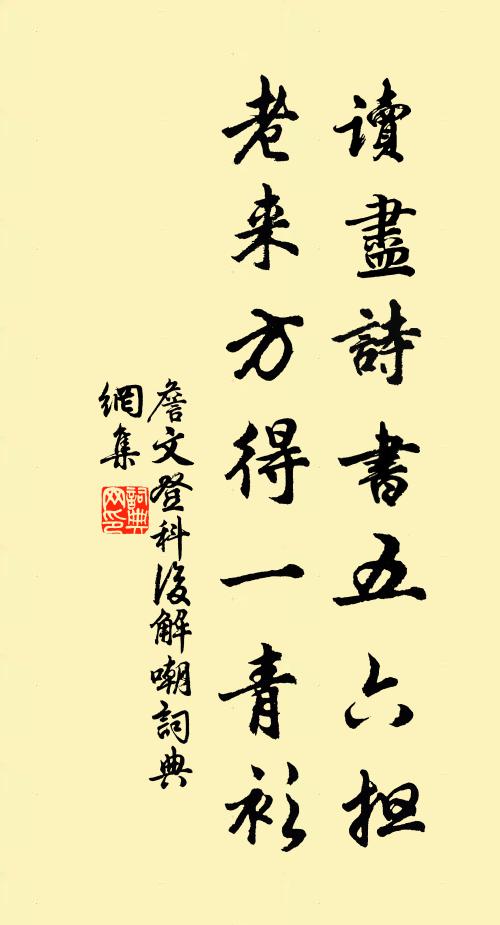 讀盡詩書五六担
老来方得一青衫
詹文登科後解嘲詞典
網集
詞典
网印